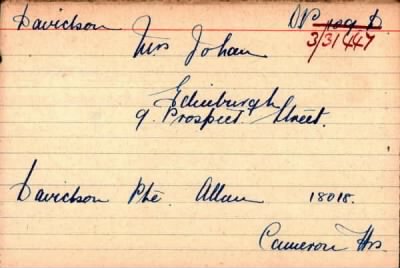 Davidson DP 109 D
3/31447
Mrs Johan
Edinburgh
9. Prospect Street.
Davidson Pte. Allan 18018.
Cameron Hrs